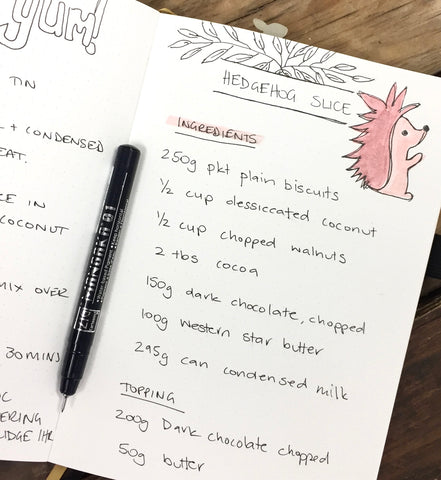 yum!
TIN
+ CONDENSED
EAT.
CE IN
COCONUT
MIX OVER
30 MINS
OC
ERING
IDGE 1HR
HEDGEHOG SLICE
INGREDIENTS
250g pkt plain biscuits
1/2 cup dessiccated coconut
1/2 cup chopped walnuts
2 tbs cocoa
150g dark chocolate, chopped
100g western star butter
295g can condensed milk
TOPPING
200g Dark chocolate chopped
50g butter
ZIG MANGAKA 01